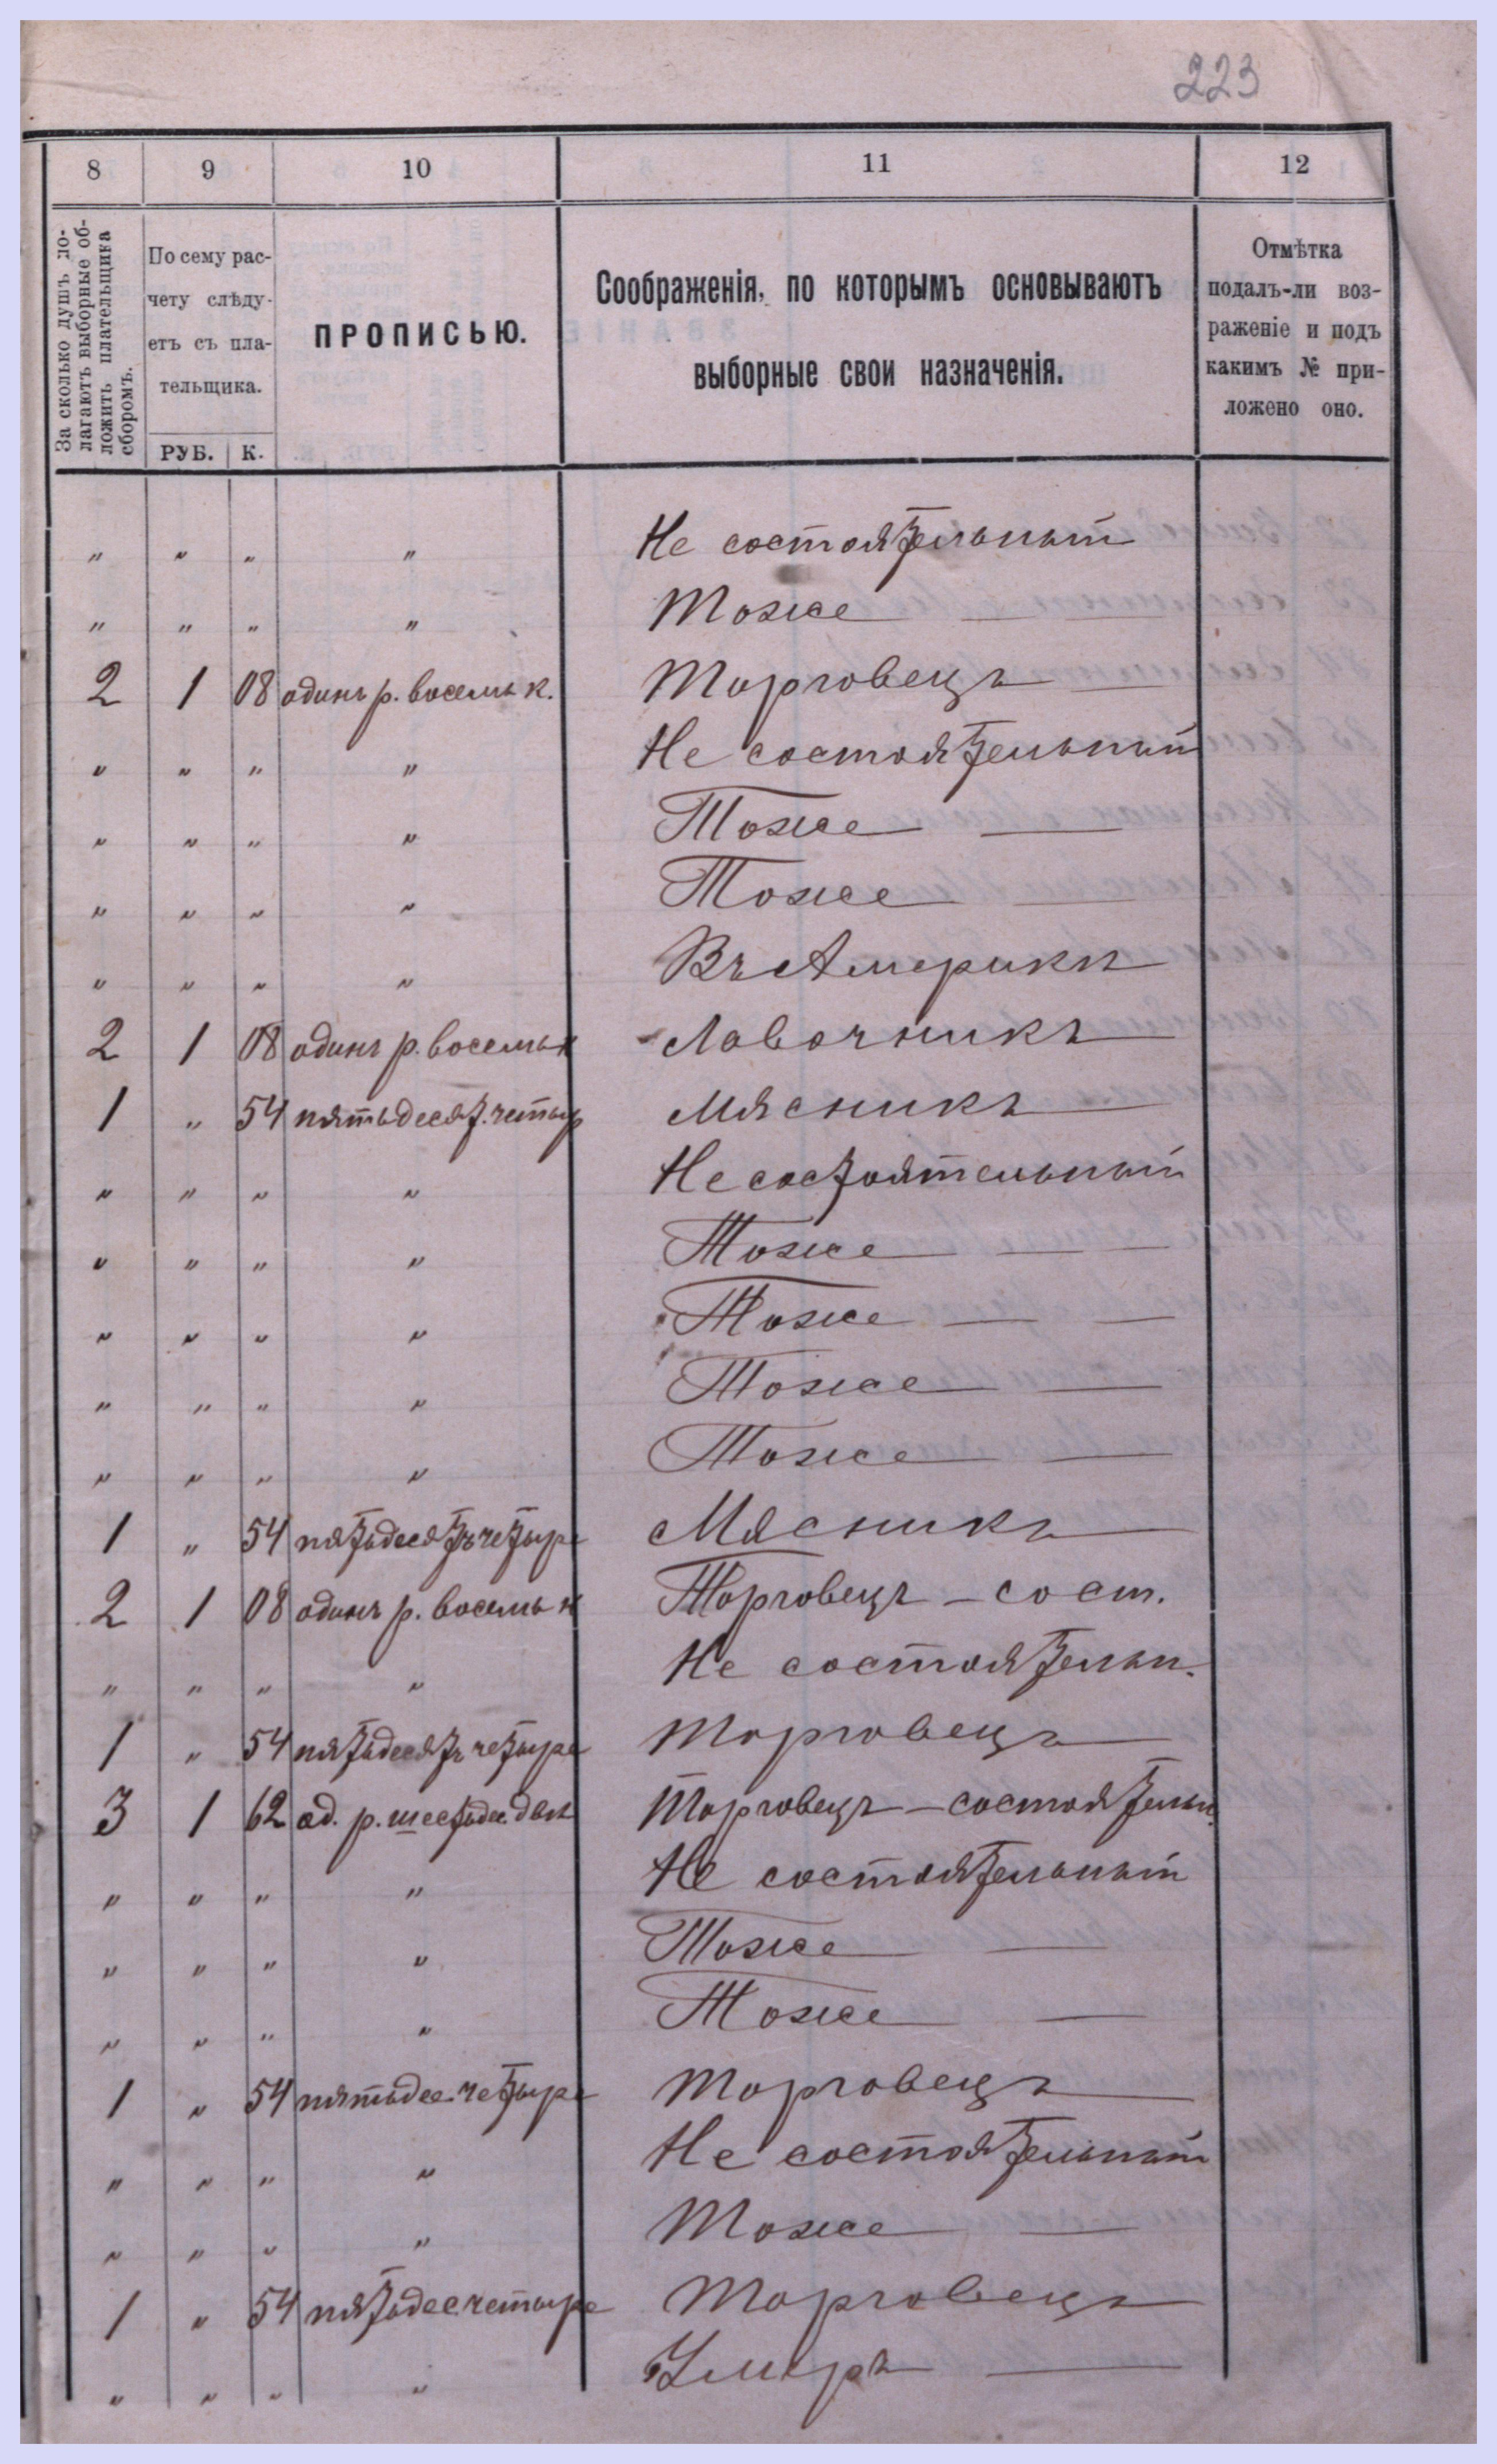 223
8 9 10 11 12
За сколько душъ по-
лагаютъ выборные об-
ложить плательщика
сборомъ.
По сему рас-
чету слѣду-
етъ съ пла-
тельщика.
РУБ. К.
ПРОПИСЬЮ.
Соображенія, по которымъ основываютъ
выборные свои назначенія.
Отмѣтка
подалъ-ли воз-
раженіе и подъ
какимъ № при-
ложено оно.
" " " " Не состоятельный
" " " " Тоже —
2 1 08 одинъ р. восемь к. Торговецъ —
" " " " Не состоятельный
" " " " Тоже —
" " " " Тоже —
" " " " Въ Америкѣ
2 1 08 одинъ р. восемь к Лавочникъ
1 " 54 пятьдесят. четыр Мясникъ —
" " " " Не состоятельный
" " " " Тоже — —
" " " " Тоже — —
" " " " Тоже —
" " " " Тоже —
1 " 54 пятьдесятъ четыре Мясникъ
2 1 08 одинъ р. восемь к Торговецъ — сост.
" " " " Не состоятельн.
1 " 54 пятьдесятъ четыре Торговецъ
3 1 62 од. р. шестьдес. двѣ Торговецъ — состоятельн.
" " " " Не состоятельный
" " " " Тоже —
" " " " Тоже —
1 " 54 пятьдес. четыре Торговецъ
" " " " Не состоятельный
" " " " Тоже —
1 " 54 пятьдес. четыре Торговецъ
" " " " Умеръ —